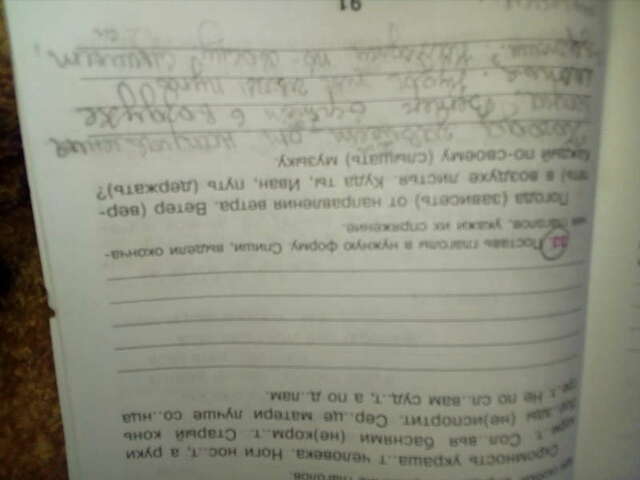 глаголов.
Скромность украша..т человека. Ноги нос..т, а руки
корм..т. Сол..вья баснями (не)корм..т. Старый конь
(не)испортит. Сер..це матери лучше со..нца
гре..т. Не по сл..вам суд..т, а по д..лам.
Поставь глаголы в нужную форму. Спиши, выдели оконча-
глаголов, укажи их спряжение.
Погода (зависеть) от направления ветра. Ветер (вер-
теть) в воздухе листья. Куда ты, Иван, путь (держать)?
Каждый по-своему (слышать) музыку.
Погода зависит от направления
ветра. Ветер в воздухе
листья. Куда
Каждый по-своему слышит
91